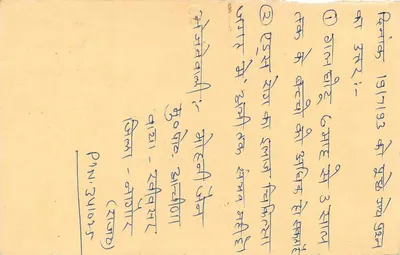 दिनांक 19/7/93 को पूछे गये प्रश्न
का उत्तर :-
① गलघोंटू 6 माह से 3 साल
तक के बच्चे को अधिक हो सकता है
② एड्स रोग का इलाज चिकित्सा
जगत में अभी तक संभव नहीं है।
भेजनेवाली :- मोहनी जैन
मु० पो०
वाया - खींवसर
जिला - नागौर
(राज०)
PIN-341025